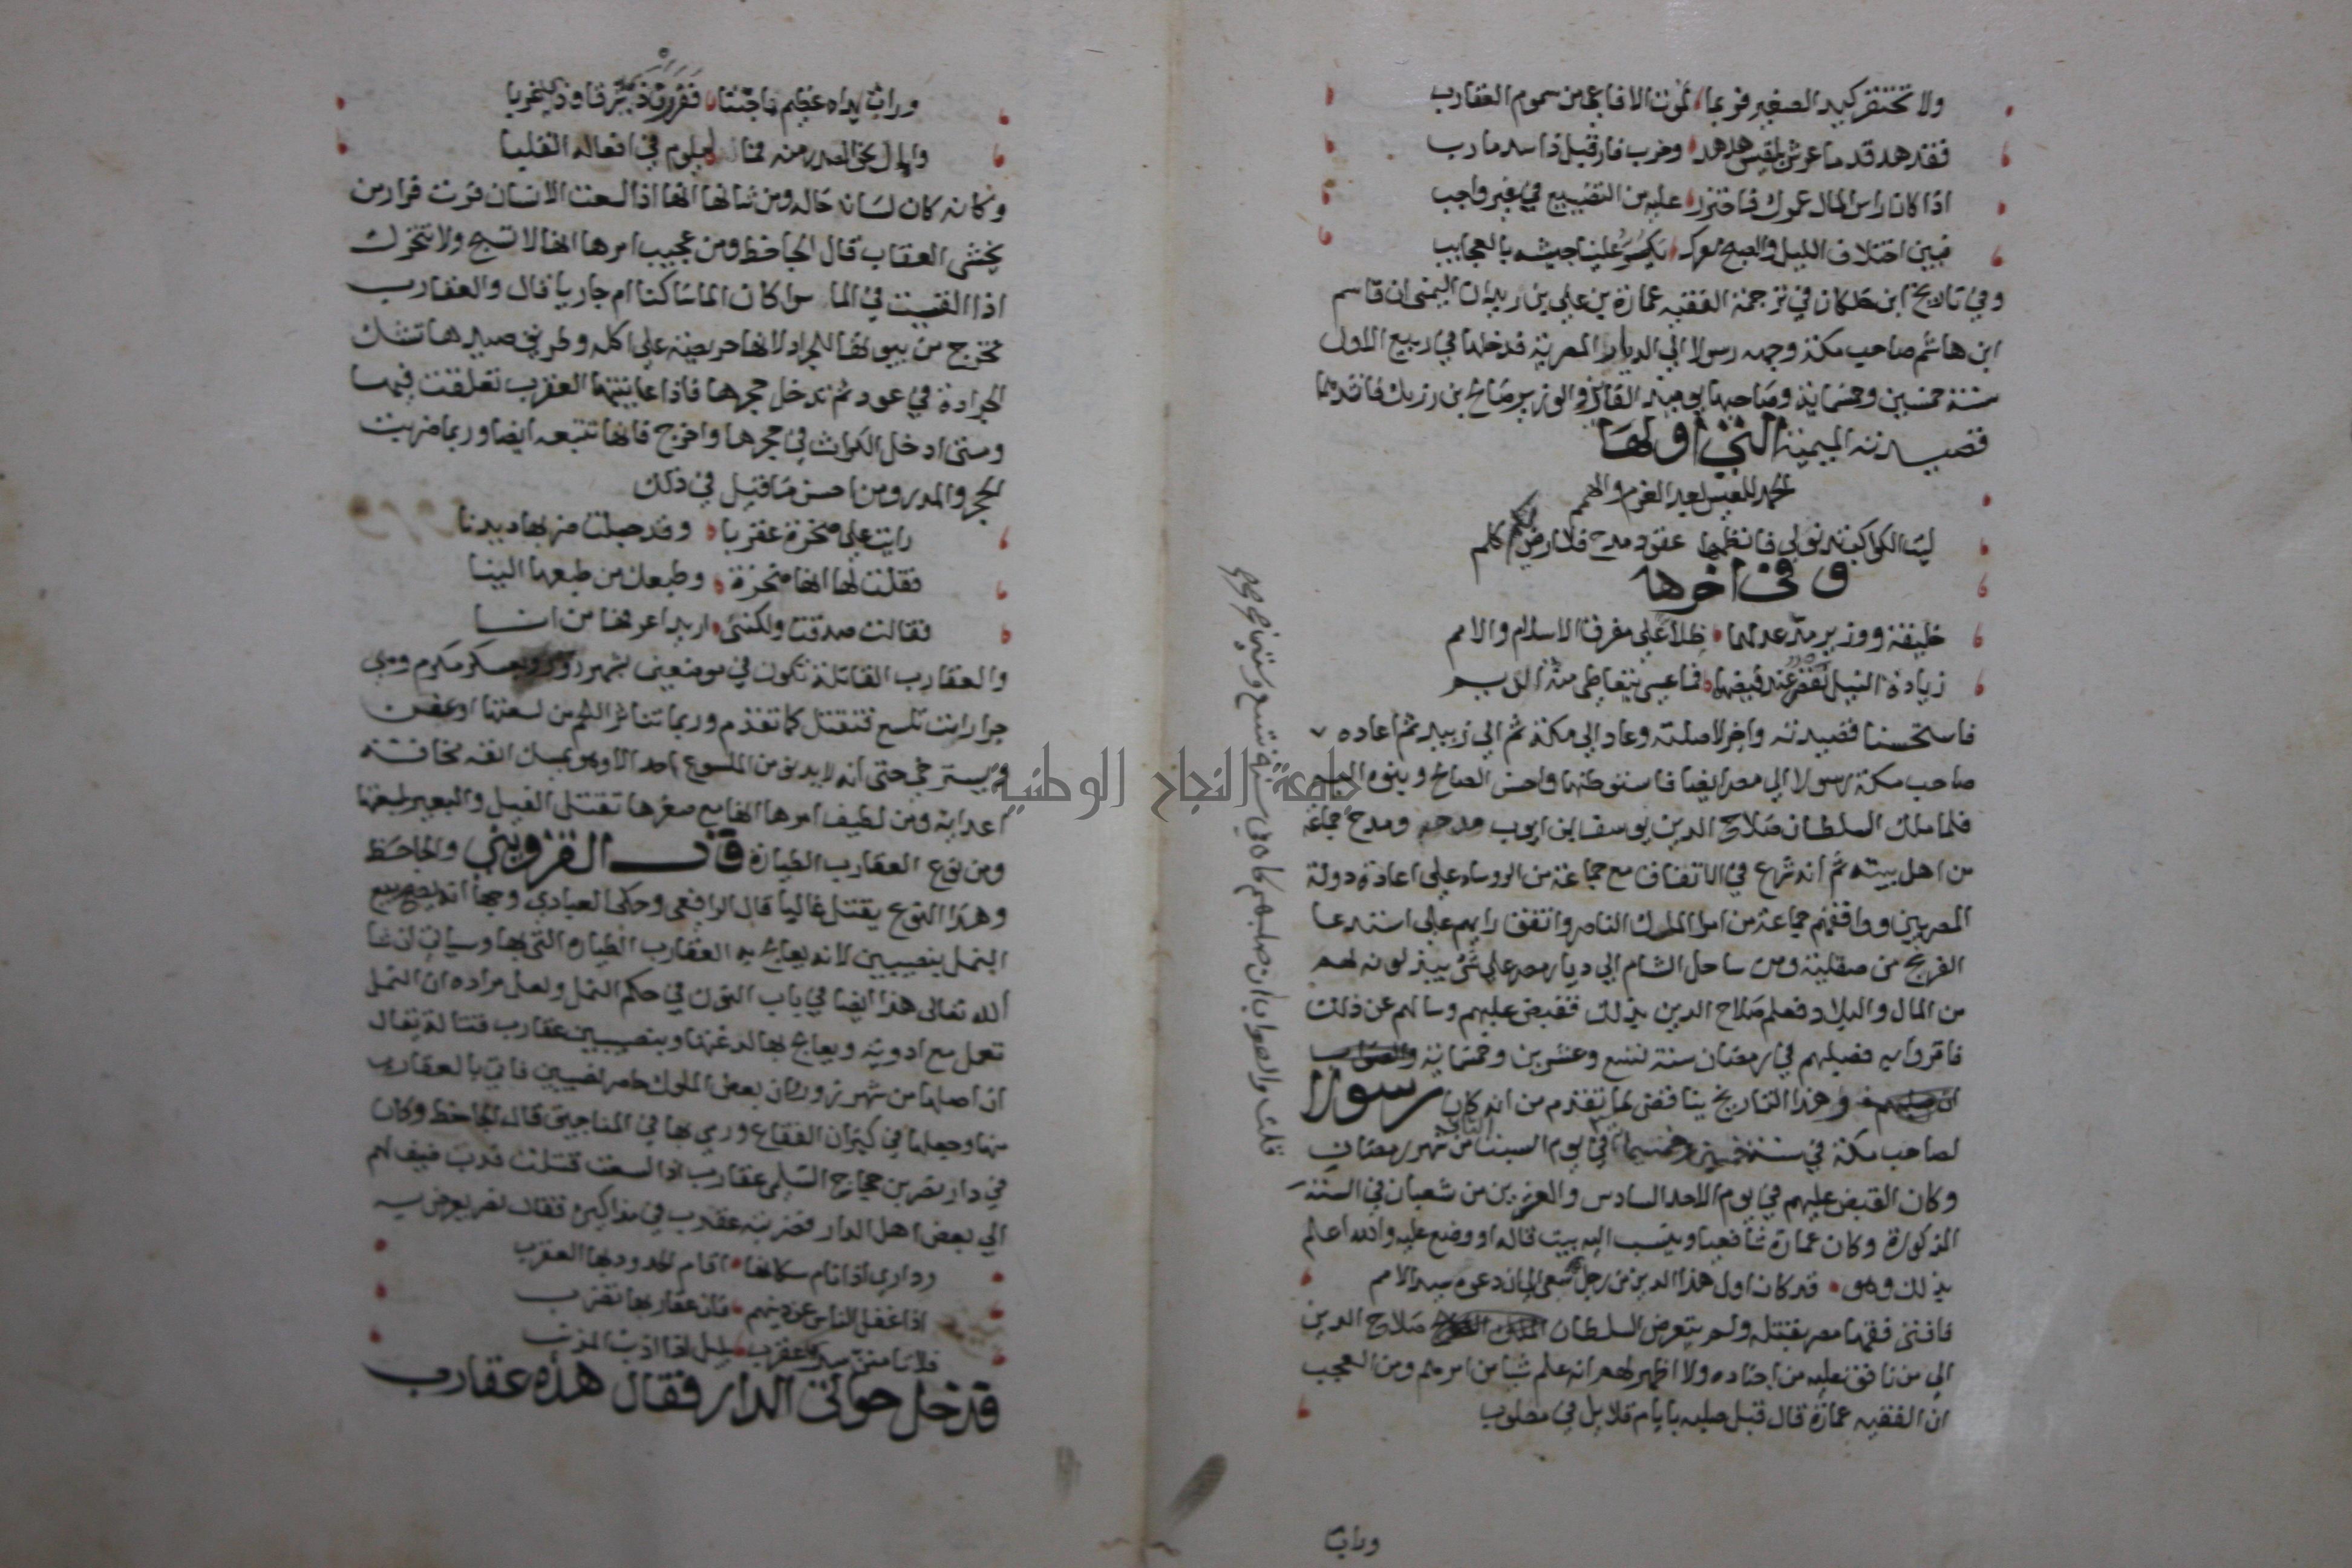 ولا تحتقر كيد الصغير فربما تموت الافاعي من سموم العقارب
فقد هد قدما عرش بلقيس هدهد وخرب فار قبل ذا سد مارب
اذا كان راس المال عمرك فاحترز عليه من التضييع في غير واجب
فبين اختلاف الليل والصبح معرك يكر علينا جيشه بالعجايب
وفي تاريخ ابن خلكان في ترجمة الفقيه عمارة بن علي بن زيدان اليمني ان قاسم
ابن هاشم صاحب مكة وجهه رسولا الي الديار المصرية فدخلها في ربيع الاول
سنة خمسين وخمسماية وصاحبها يوميذ الفائز والوزير صالح بن رزيك فانشدهما
قصيدته الميمية التي اولها
الحمد للعيس بعد العزم والهمم
ليت الكواكب تدنو لي فانظمها عقود مدح فلا ارضي لكم كلم
وفي اخرها
خليفة ووزير مد عدلهما ظلا علي مفرق الاسلام والامم
زيادة النيل نقص عند فيضهما فما عسي يتعاطي منة الديم
فاستحسنا قصيدته واجزلا صلته وعاد الي مكة ثم الي زبيد ثم اعاده
صاحب مكة رسولا الي مصر ايضا فاستوطنها واحسن الصالح وبنوه اليه
فلما ملك السلطان صلاح الدين يوسف ابن ايوب مدحه ومدح جماعة
من اهل بيته ثم انه شرع في الاتفاق مع جماعة من الروساء علي اعادة دولة
المصريين ووافقهم جماعة من امرا الملك الناصر واتفق رايهم علي استدعا
الفرنج من صقلية ومن ساحل الشام الي ديار مصر علي شئ يبذلونه لهم
من المال والبلاد فعلم صلاح الدين بذلك فقبض عليهم وسالهم عن ذلك
فاقروا به فصلبهم في رمضان سنة تسع وعشرين وخمسماية والصواب
ان صلبهم وهذا التاريخ يناقض لما تقدم من انه كان رسولا
لصاحب مكة في سنة خمسين وخمسماية في يوم السبت الثاني من شهر رمضان
وكان القبض عليهم في يوم الاحد السادس والعشرين من شعبان في السنة
المذكورة وكان عمارة شافعيا وينسب اليه بيت قاله او وضع عليه والله اعلم
بذلك وهو قد كان اول هذا الدين من رجل سعي الي ان دعوه سيد الامم
فافتي فقها مصر بقتله ولم يتعرض السلطان صلاح الدين
الي من نافق عليه من اجناده ولا اظهر لهم انه علم شيا من امرهم ومن العجب
ان الفقيه عمارة قال قبل صلبه بايام قلايل في مصلوب
ورات
قلت والصواب ان صلبهم كان في سنة تسع وستين
ورات يداه عظيم ما جنتا ففررن ذي شرقا وذي غربا
وامال نحو الصدر منه فما ليلوم في افعاله القلبا
وكانه كان لسان حاله ومن شانها انها اذا لسعت الانسان فرت فرار من
يخشي العقاب قال الجاحظ ومن عجيب امرها انها لا تسبح ولا تتحرك
اذا القيت في الما سوا كان الما ساكنا ام جاريا قال والعقارب
تخرج من بيوتها للجراد لانها حريصة علي اكله وطريق صيدها تشك
الجرادة في عود ثم تدخل حجرها فاذا عاينتها العقرب تعلقت فيها
ومتي ادخل الكراث في حجرها واخرج فانها تتبعه ايضا وربما ضربت
الحجر والمدر ومن احسن ما قيل في ذلك
رايت علي صخرة عقربا وقد جعلت ضربها ديدنا
فقلت لها انها صخرة وطبعك من طبعها الينا
فقالت صدقت ولكنني اريد اعرفها من انا
والعقارب القاتلة تكون في موضعين بشهرزور وبعسكر مكرم وهي
جرارات تلسع فتقتل كما تقدم وربما تناثر اللحم من لسعتها او عفن
ويسترخي حتي انه لا يدنو من الملسوع احد الا وهو يمسك انفه مخافة
اعدايه ومن لطيف امرها انها مع صغرها تقتل الفيل والبعير بلسعتها
ومن نوع العقارب الطيارة قال القزويني والجاحظ
وهذا النوع يقتل غالبا قال الرافعي وحكي العبادي وجها انه يصح بيع
النمل بنصيبين لانه يعالج به العقارب الطيارة التي بها وسياتي ان شا
الله تعالي هذا ايضا في باب النون في حكم النمل ولعل مراده ان النمل
تعمل مع ادوية ويعالج بها لدغتها وبنصيبين عقارب قتالة يقال
ان اصلها من شهرزور وان بعض الملوك حاصر نصيبين فاتي بالعقارب
منها وجعلها في كيزان الفقاع ورمي بها في المناجيق قال الجاحظ وكان
في دار نصر بن حجاج السلمي عقارب اذا لسعت قتلت فدب ضيف لهم
الي بعض اهل الدار فضربته عقرب في مذاكيره فقال نصر يعرض به
وداري اذا نام سكانها اقام الحدود بها العقرب
اذا غفل الناس عن دينهم فان عقاربها تضرب
فلا تامنن سري عقرب بليل اذا اذنب المذنب
فدخل حوا الي الدار فقال هذه عقارب